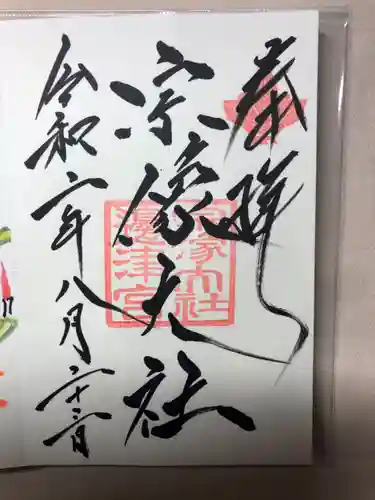 奉拝
宗像大社
宗像大社
邊津宮
令和六年八月二十三日
17